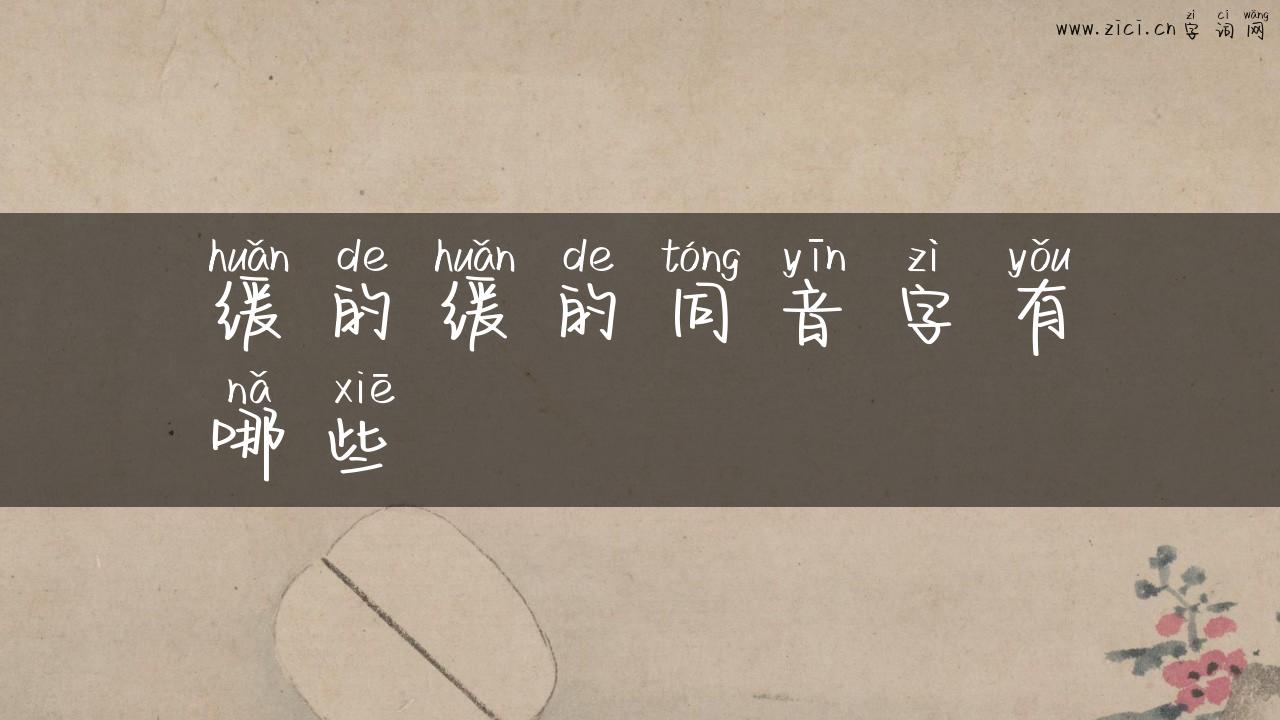 zì cí wǎng
www.zici.cn 字 词 网
huǎn de huǎn de tóng yīn zì yǒu
缓 的 缓 的 同 音 字 有
nǎ xiē
哪 些